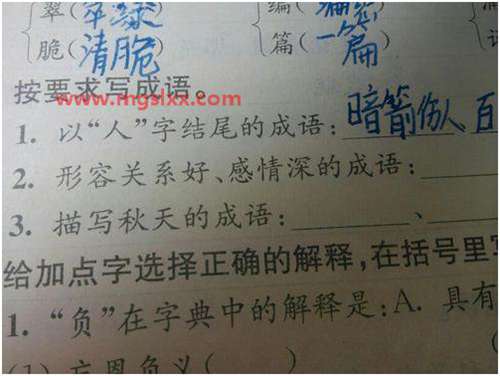 翠(翠绿) 编(
脆(清脆) 篇(一篇)
按要求写成语。
www.mgslxx.com
1. 以“人”字结尾的成语:暗箭伤人 百
2. 形容关系好、感情深的成语:
3. 描写秋天的成语: 、
给加点字选择正确的解释,在括号里
1. “负”在字典中的解释是:A. 具有
(1) 忘恩负义( ) (